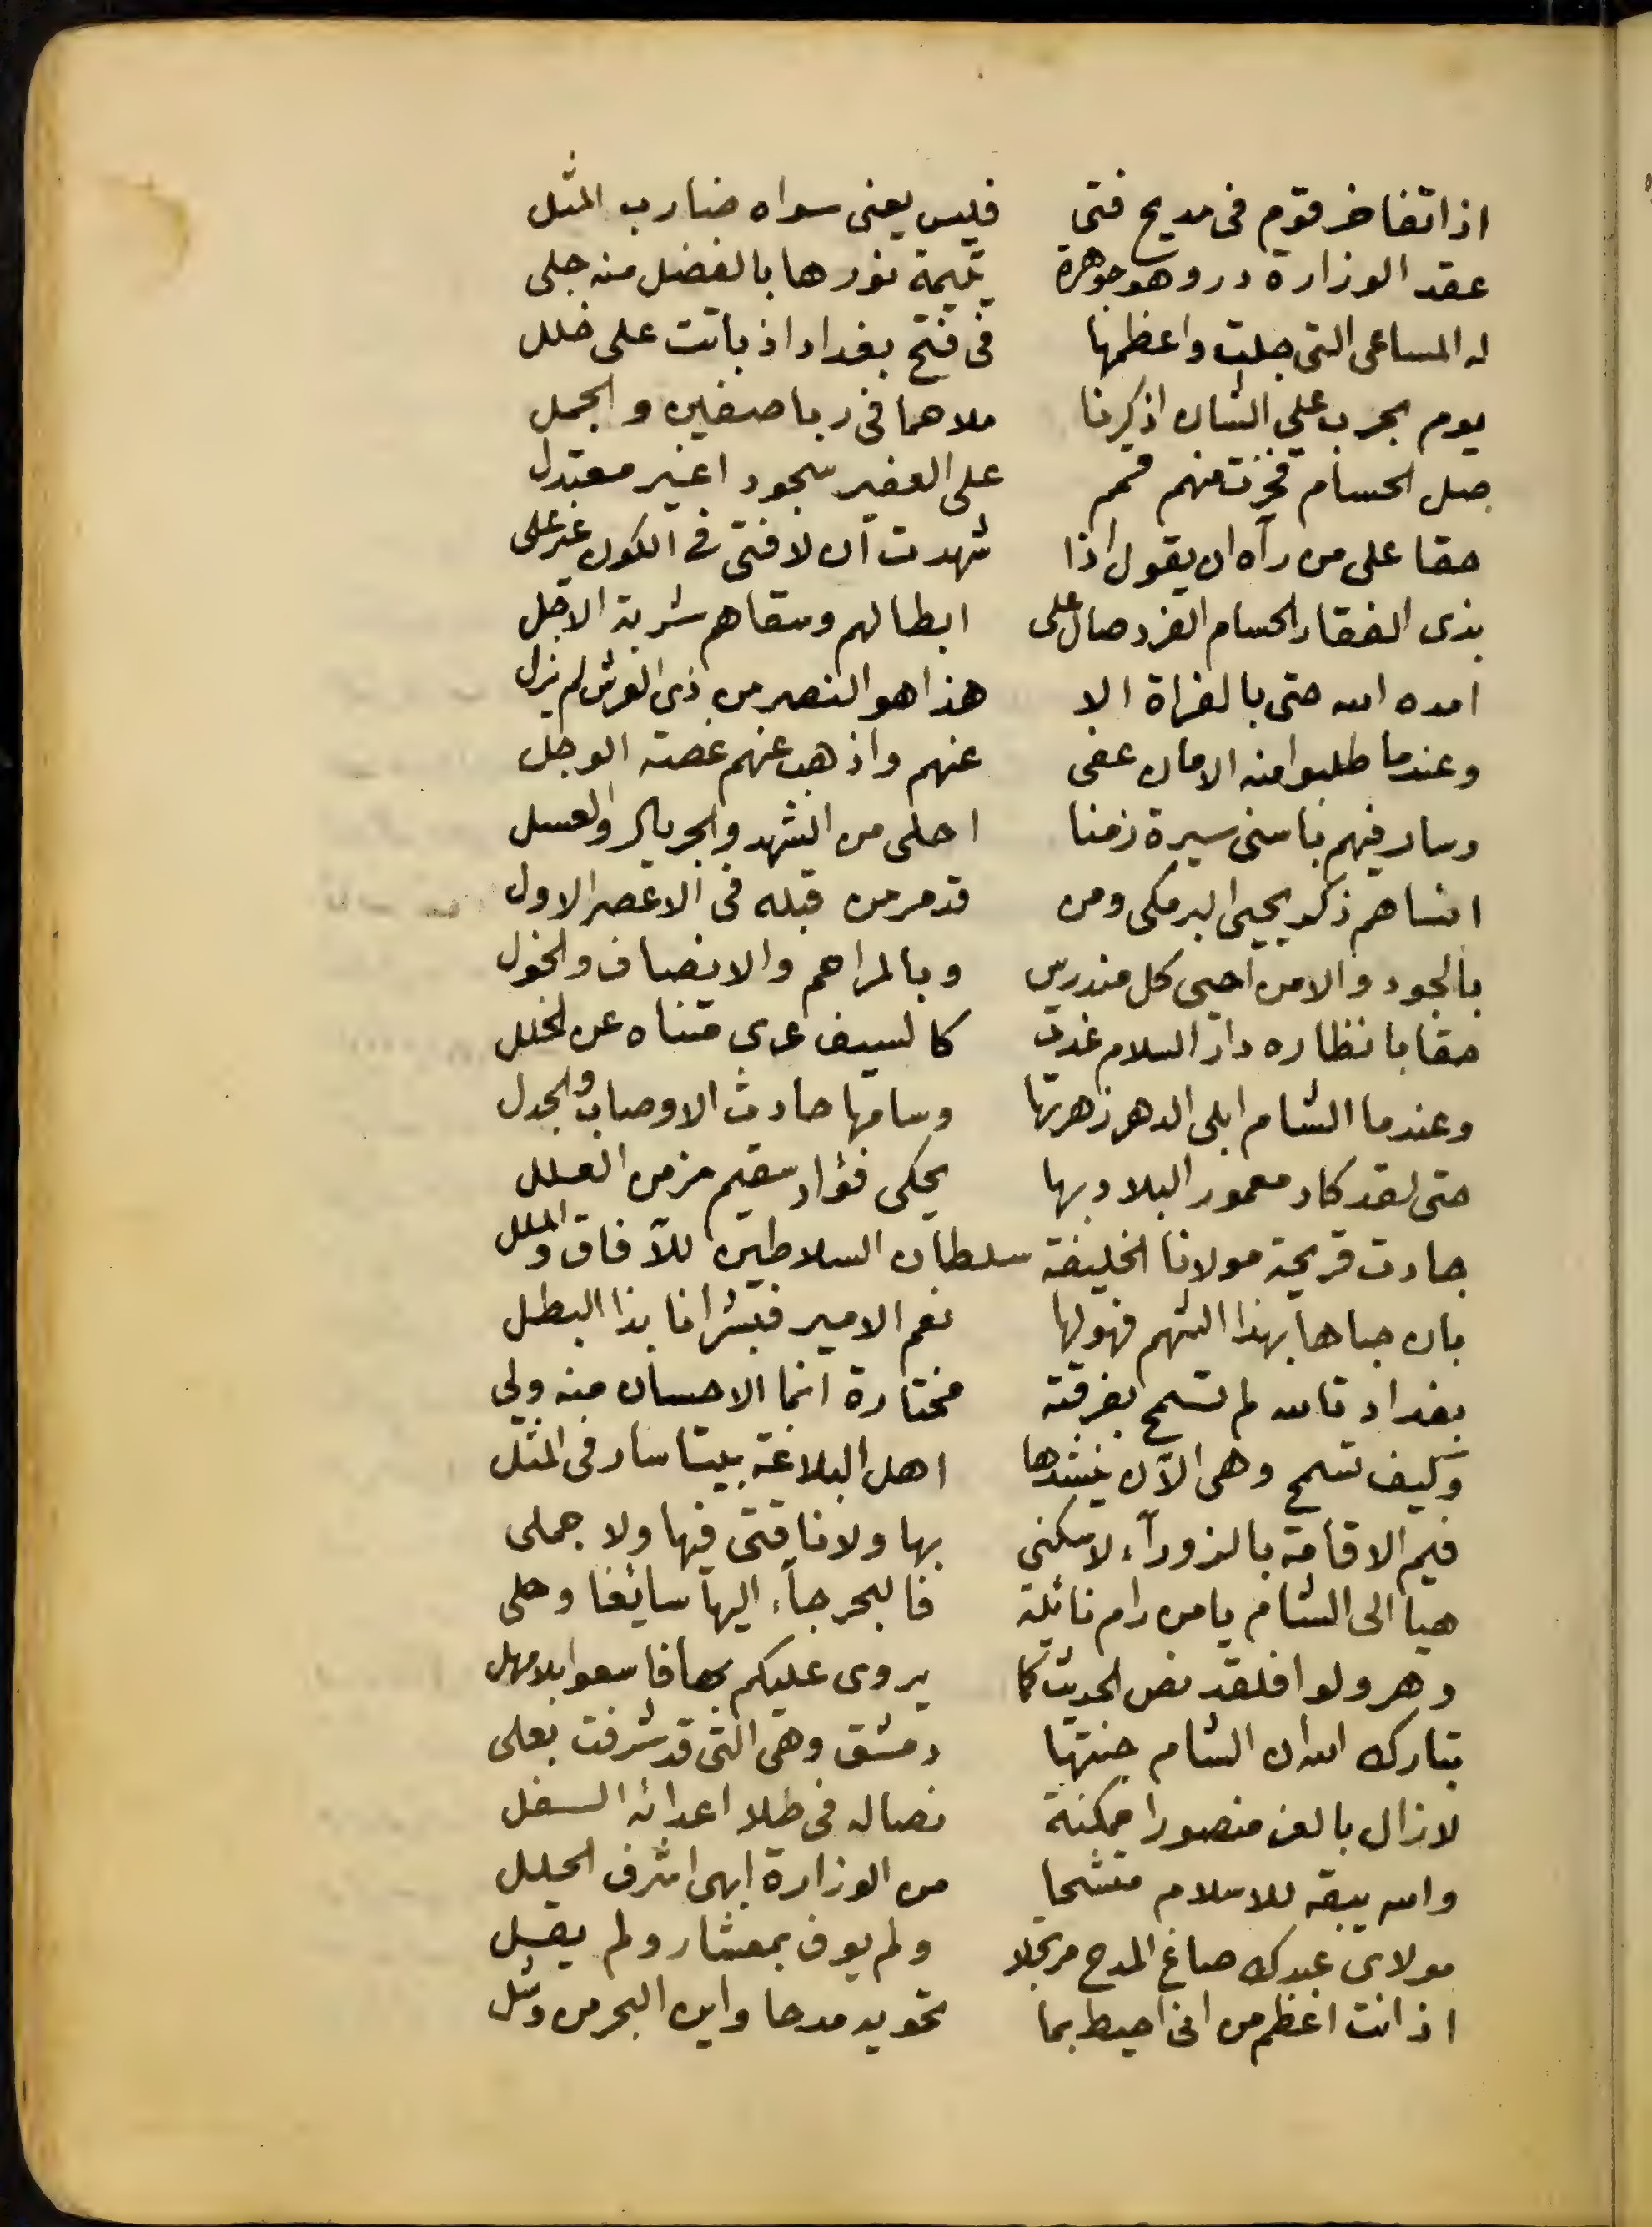 اذا تفاخر قوم فى مديح فتى فليس يعنى سواه ضارب المثل
عقد الوزارة درو هو جوهرة يتيمة نورها بالفضل منه جلى
له المساعى التى جلت واعظمها فى فتح بغداد اذ باتت على خلل
يوم بحرب على الشان اذكرنا ملاهما فى ربا صفين والجمل
صل الحسام فخرت منهم قمم على العفير سجود اغير معتدل
حقا على من رآه ان يقول اذا شهدت ان لا فتى فى الكون غير على
بذى الفقار الحسام الفرد صال على ابطالهم وسقاهم شربة الاجل
امده الله حتى بالغزاة الا هذا هو النصر من ذى العرش لم يزل
وعندما طلبوا منه الامان عفى عنهم واذهب عنهم غصة الوجل
وسار فيهم باسنى سيرة زمنا احلى من الشهد والجريال والعسل
انساهم ذكر يحيى البرمكى ومن قد مر من قبله فى الاعصر الاول
بالجود والامن احيى كل مندرس وبالمراحم والانصاف والخول
حقا بانظاره دار السلام غدت كالسيف عرى متناه عن الخلل
وعندما الشام ابلى الدهر زهرتها وسامها حادث الاوصاب والجدل
حتى لقد كاد معمور البلاد بها يحكى فؤاد سقيم مزمن العلل
جادت قريحة مولانا الخليفة سلطان السلاطين للآفاق والملل
بان حباها بهذا الشهم فهو لها نعم الامير فبشرانا بذا البطل
بغداد تالله لم تسمح بفرقته مختارة انما الاحسان منه ولي
وكيف تسمح وهى الآن ينشدها اهل البلاغة بيتا سار فى المثل
فيم الاقامة بالزورآء لا سكنى بها ولا ناقتى فيها ولا جملى
هيا الى الشام يا من رام نائله فالبحر جآء اليها سائغا وحلى
وهرولوا فلقد نص الحديث كما يروى عليكم بها فاسعوا بلا مهل
تبارك الله ان الشام جنتها دمشق وهى التى قد شرفت بعلى
لا زال بالعز منصورا ممكنة نصاله فى طلا اعدائه السفل
والله يبقه للاسلام متشحا من الوزارة ابهى اشرف الحلل
مولاى عبدك صاغ المدح مرتجلا ولم يوف بمعشار ولم يقل
اذ انت اعظم من انى احيط بما تحويه مدحا واين البحر من وشل